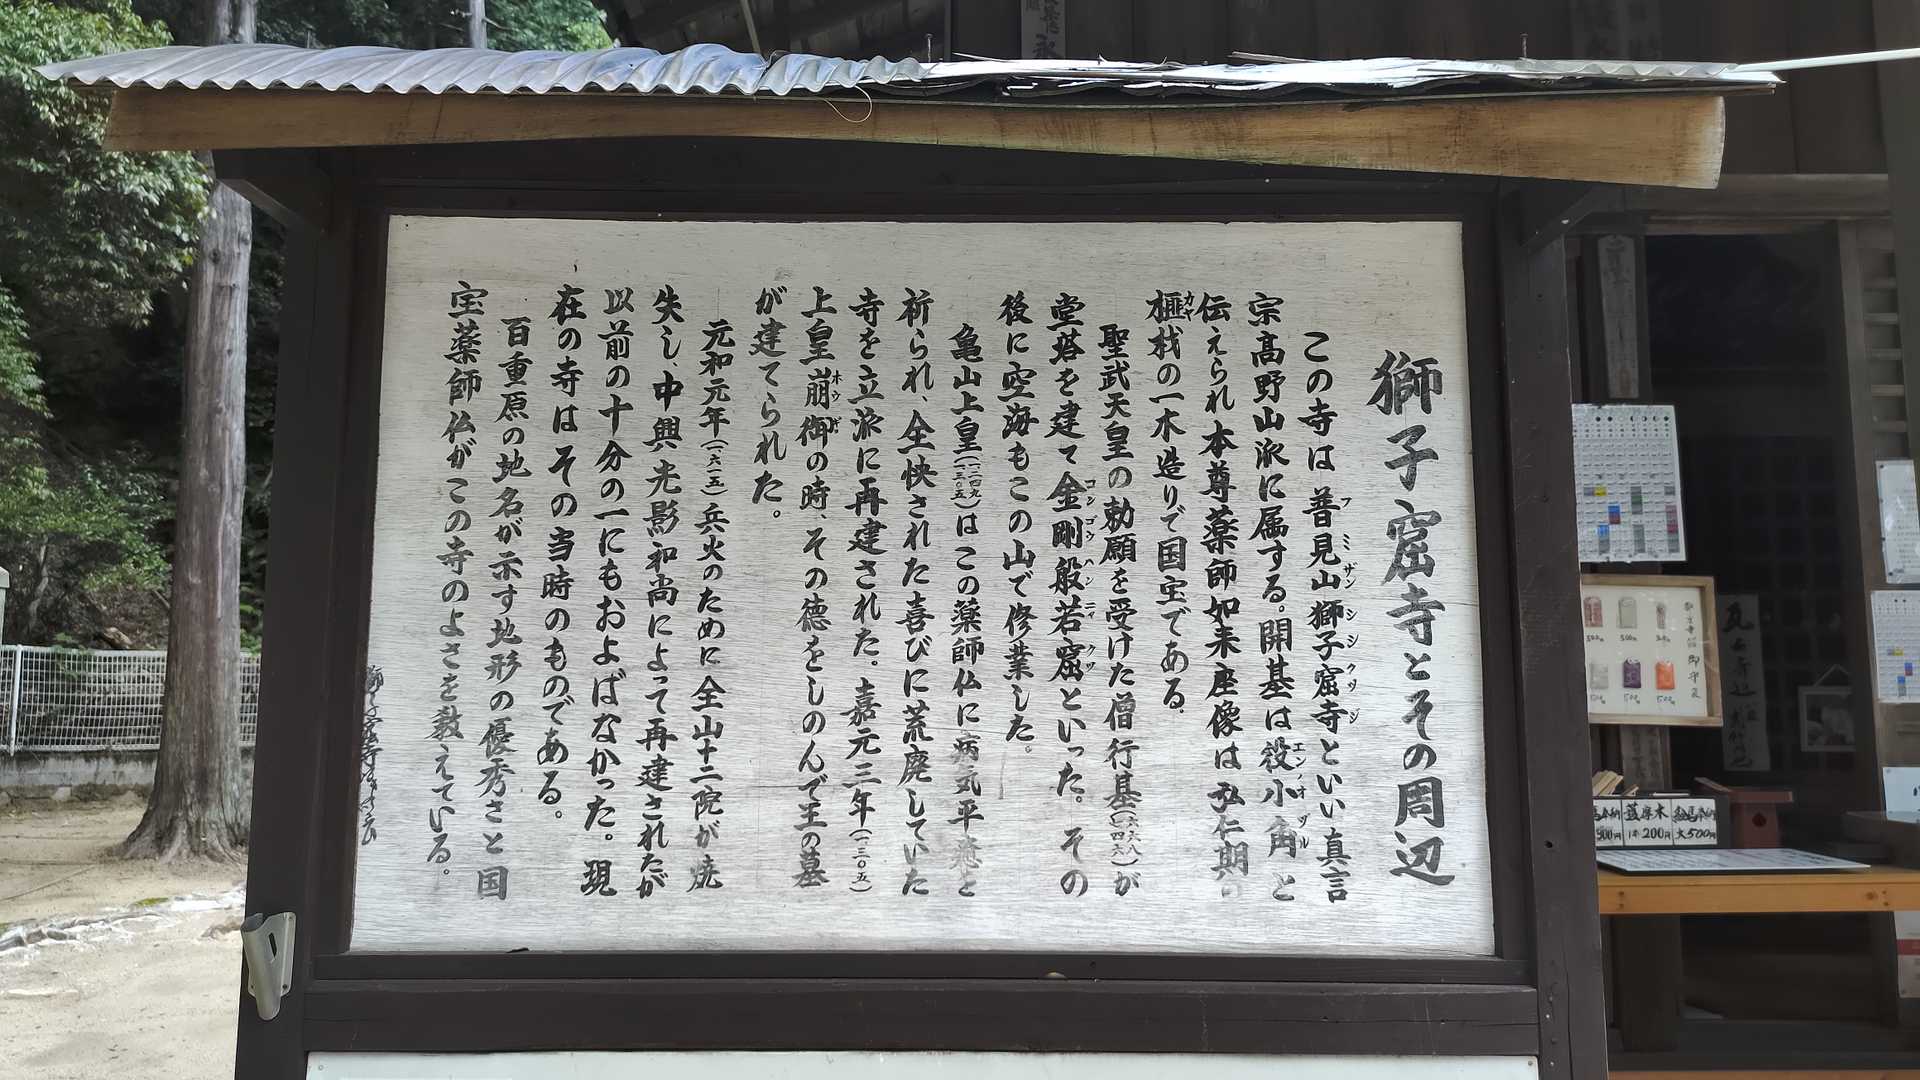 獅子窟寺とその周辺
この寺は普見山獅子窟寺といい真言
宗高野山派に属する。開基は役小角と
伝えられ本尊薬師如来座像は弘仁期の
榧材の一木造りで国宝である。
聖武天皇の勅願を受けた僧行基(六六八|七四九)が
堂塔を建て金剛般若窟といった。その
後に空海もこの山で修業した。
亀山上皇(一二四九|一三〇五)はこの薬師仏に病気平癒を
祈られ、全快された喜びに荒廃していた
寺を立派に再建された。嘉元三年(一三〇五)
上皇崩御の時、その徳をしのんで王の墓
が建てられた。
元和元年(一六一五)兵火のために全山十二院が焼
失し、中興光影和尚によって再建されたが
以前の十分の一にもおよばなかった。現
在の寺はその当時のものである。
百重原の地名が示す地形の優秀さと国
宝薬師仏がこの寺のよさを教えている。
500円
500円
500円
500円
200円
大500円